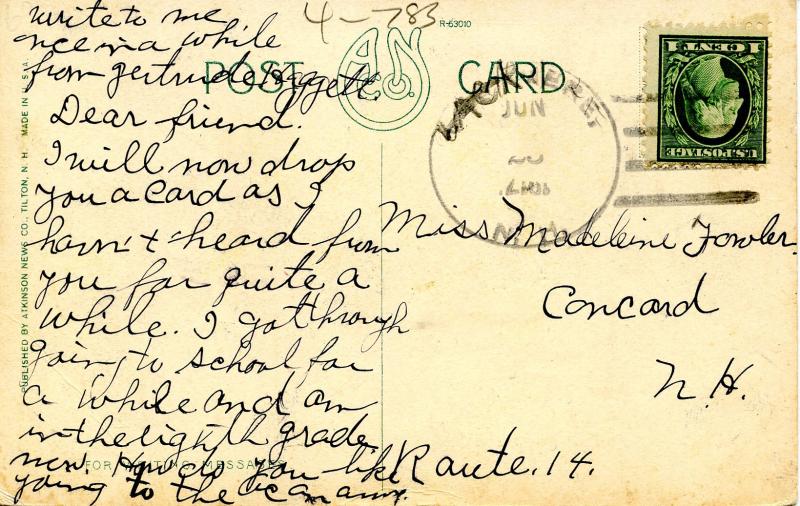 write to me
once in a while
from Gertrude
4-783
R-53010
POST CARD
A.N.
Co.
JUN
N.H.
1 CENT 1
U.S. POSTAGE
Dear friend.
I will now drop
you a card as I
havn't heard from
you for quite a
while. I got through
going to school for
a while and am
in the eighth grade
now. how do you like
going to the academy.
Miss Madeleine Fowler.
Concord
N.H.
Route. 14.
FOR WRITING MESSAGES
PUBLISHED BY ATKINSON NEWS CO., TILTON, N. H. MADE IN U.S.A.